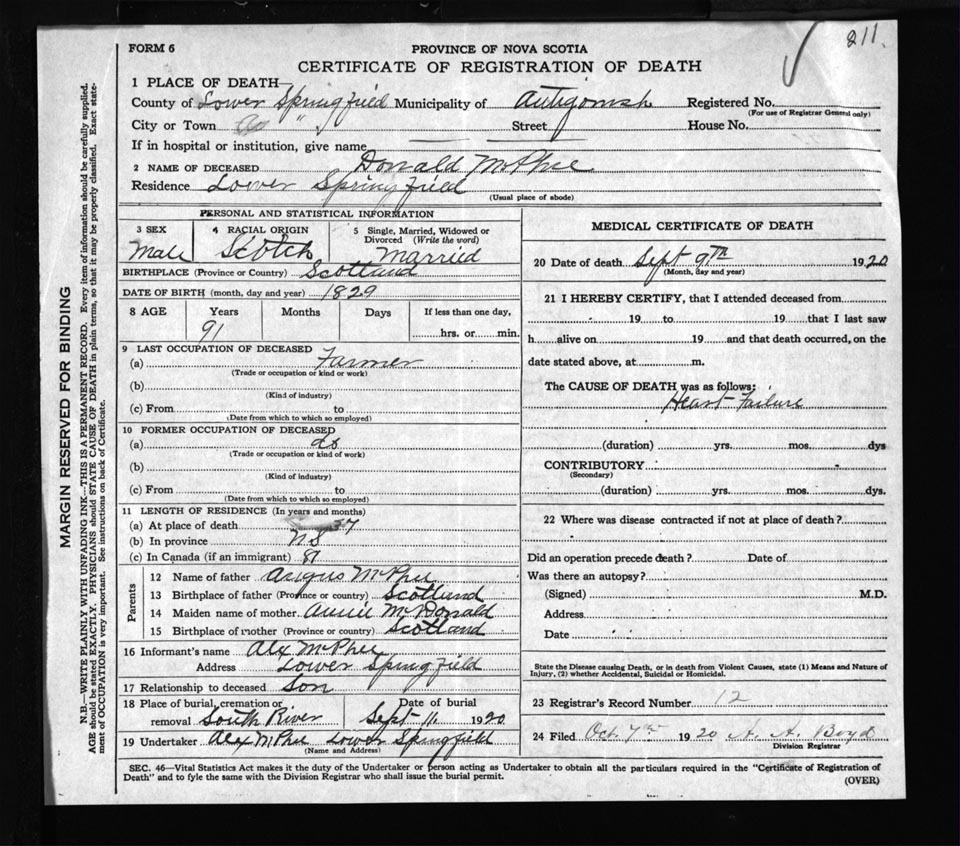 211.
FORM 6
PROVINCE OF NOVA SCOTIA
CERTIFICATE OF REGISTRATION OF DEATH
MARGIN RESERVED FOR BINDING
N.B.—WRITE PLAINLY WITH UNFADING INK—THIS IS A PERMANENT RECORD. Every item of information should be carefully supplied.
AGE should be stated EXACTLY. PHYSICIANS should STATE CAUSE OF DEATH in plain terms, so that it may be properly classified. Exact state-
ment of OCCUPATION is very important. See instructions on back of Certificate.
1 PLACE OF DEATH—
County of Lower Springfield Municipality of Antigonish Registered No.
(For use of Registrar General only)
City or Town " Street House No.
If in hospital or institution, give name
2 NAME OF DECEASED Donald McPhee
Residence Lower Springfield
(Usual place of abode)
PERSONAL AND STATISTICAL INFORMATION
3 SEX 4 RACIAL ORIGIN 5 Single, Married, Widowed or
Divorced (Write the word)
Male Scotch Married
BIRTHPLACE (Province or Country) Scotland
DATE OF BIRTH (month, day and year) 1829
8 AGE Years Months Days If less than one day,
91 hrs. or min.
9 LAST OCCUPATION OF DECEASED
(a) Farmer
(Trade or occupation or kind or work)
(b)
(Kind of industry)
(c) From to
(Date from which to which so employed)
10 FORMER OCCUPATION OF DECEASED
(a) do
(Trade or occupation or kind of work)
(b)
(Kind of industry)
(c) From to
(Date from which to which so employed)
11 LENGTH OF RESIDENCE (In years and months)
(a) At place of death 57
(b) In province NS
(c) In Canada (if an immigrant) 81
Parents
12 Name of father Angus McPhee
13 Birthplace of father (Province or country) Scotland
14 Maiden name of mother Annie McDonald
15 Birthplace of mother (Province or country) Scotland
16 Informant's name Alx McPhee
Address Lower Springfield
17 Relationship to deceased Son
18 Place of burial, cremation or Date of burial
removal South River Sept 11 1920
19 Undertaker Alex McPhee Lower Springfield
(Name and Address)
MEDICAL CERTIFICATE OF DEATH
20 Date of death Sept 9th 1920
(Month, day and year)
21 I HEREBY CERTIFY, that I attended deceased from
19 to 19 that I last saw
h alive on 19 and that death occurred, on the
date stated above, at m.
The CAUSE OF DEATH was as follows:
Heart Failure
(duration) yrs. mos. dys
CONTRIBUTORY
(Secondary)
(duration) yrs. mos. dys.
22 Where was disease contracted if not at place of death?
Did an operation precede death? Date of
Was there an autopsy?
(Signed) M.D.
Address
Date
State the Disease causing Death, or in death from Violent Causes, state (1) Means and Nature of
Injury, (2) whether Accidental, Suicidal or Homicidal.
23 Registrar's Record Number 12
24 Filed Oct. 7th 1920 A. A. Boyd
Division Registrar
SEC. 46—Vital Statistics Act makes it the duty of the Undertaker or person acting as Undertaker to obtain all the particulars required in the "Certificate of Registration of
Death" and to fyle the same with the Division Registrar who shall issue the burial permit.
(OVER)